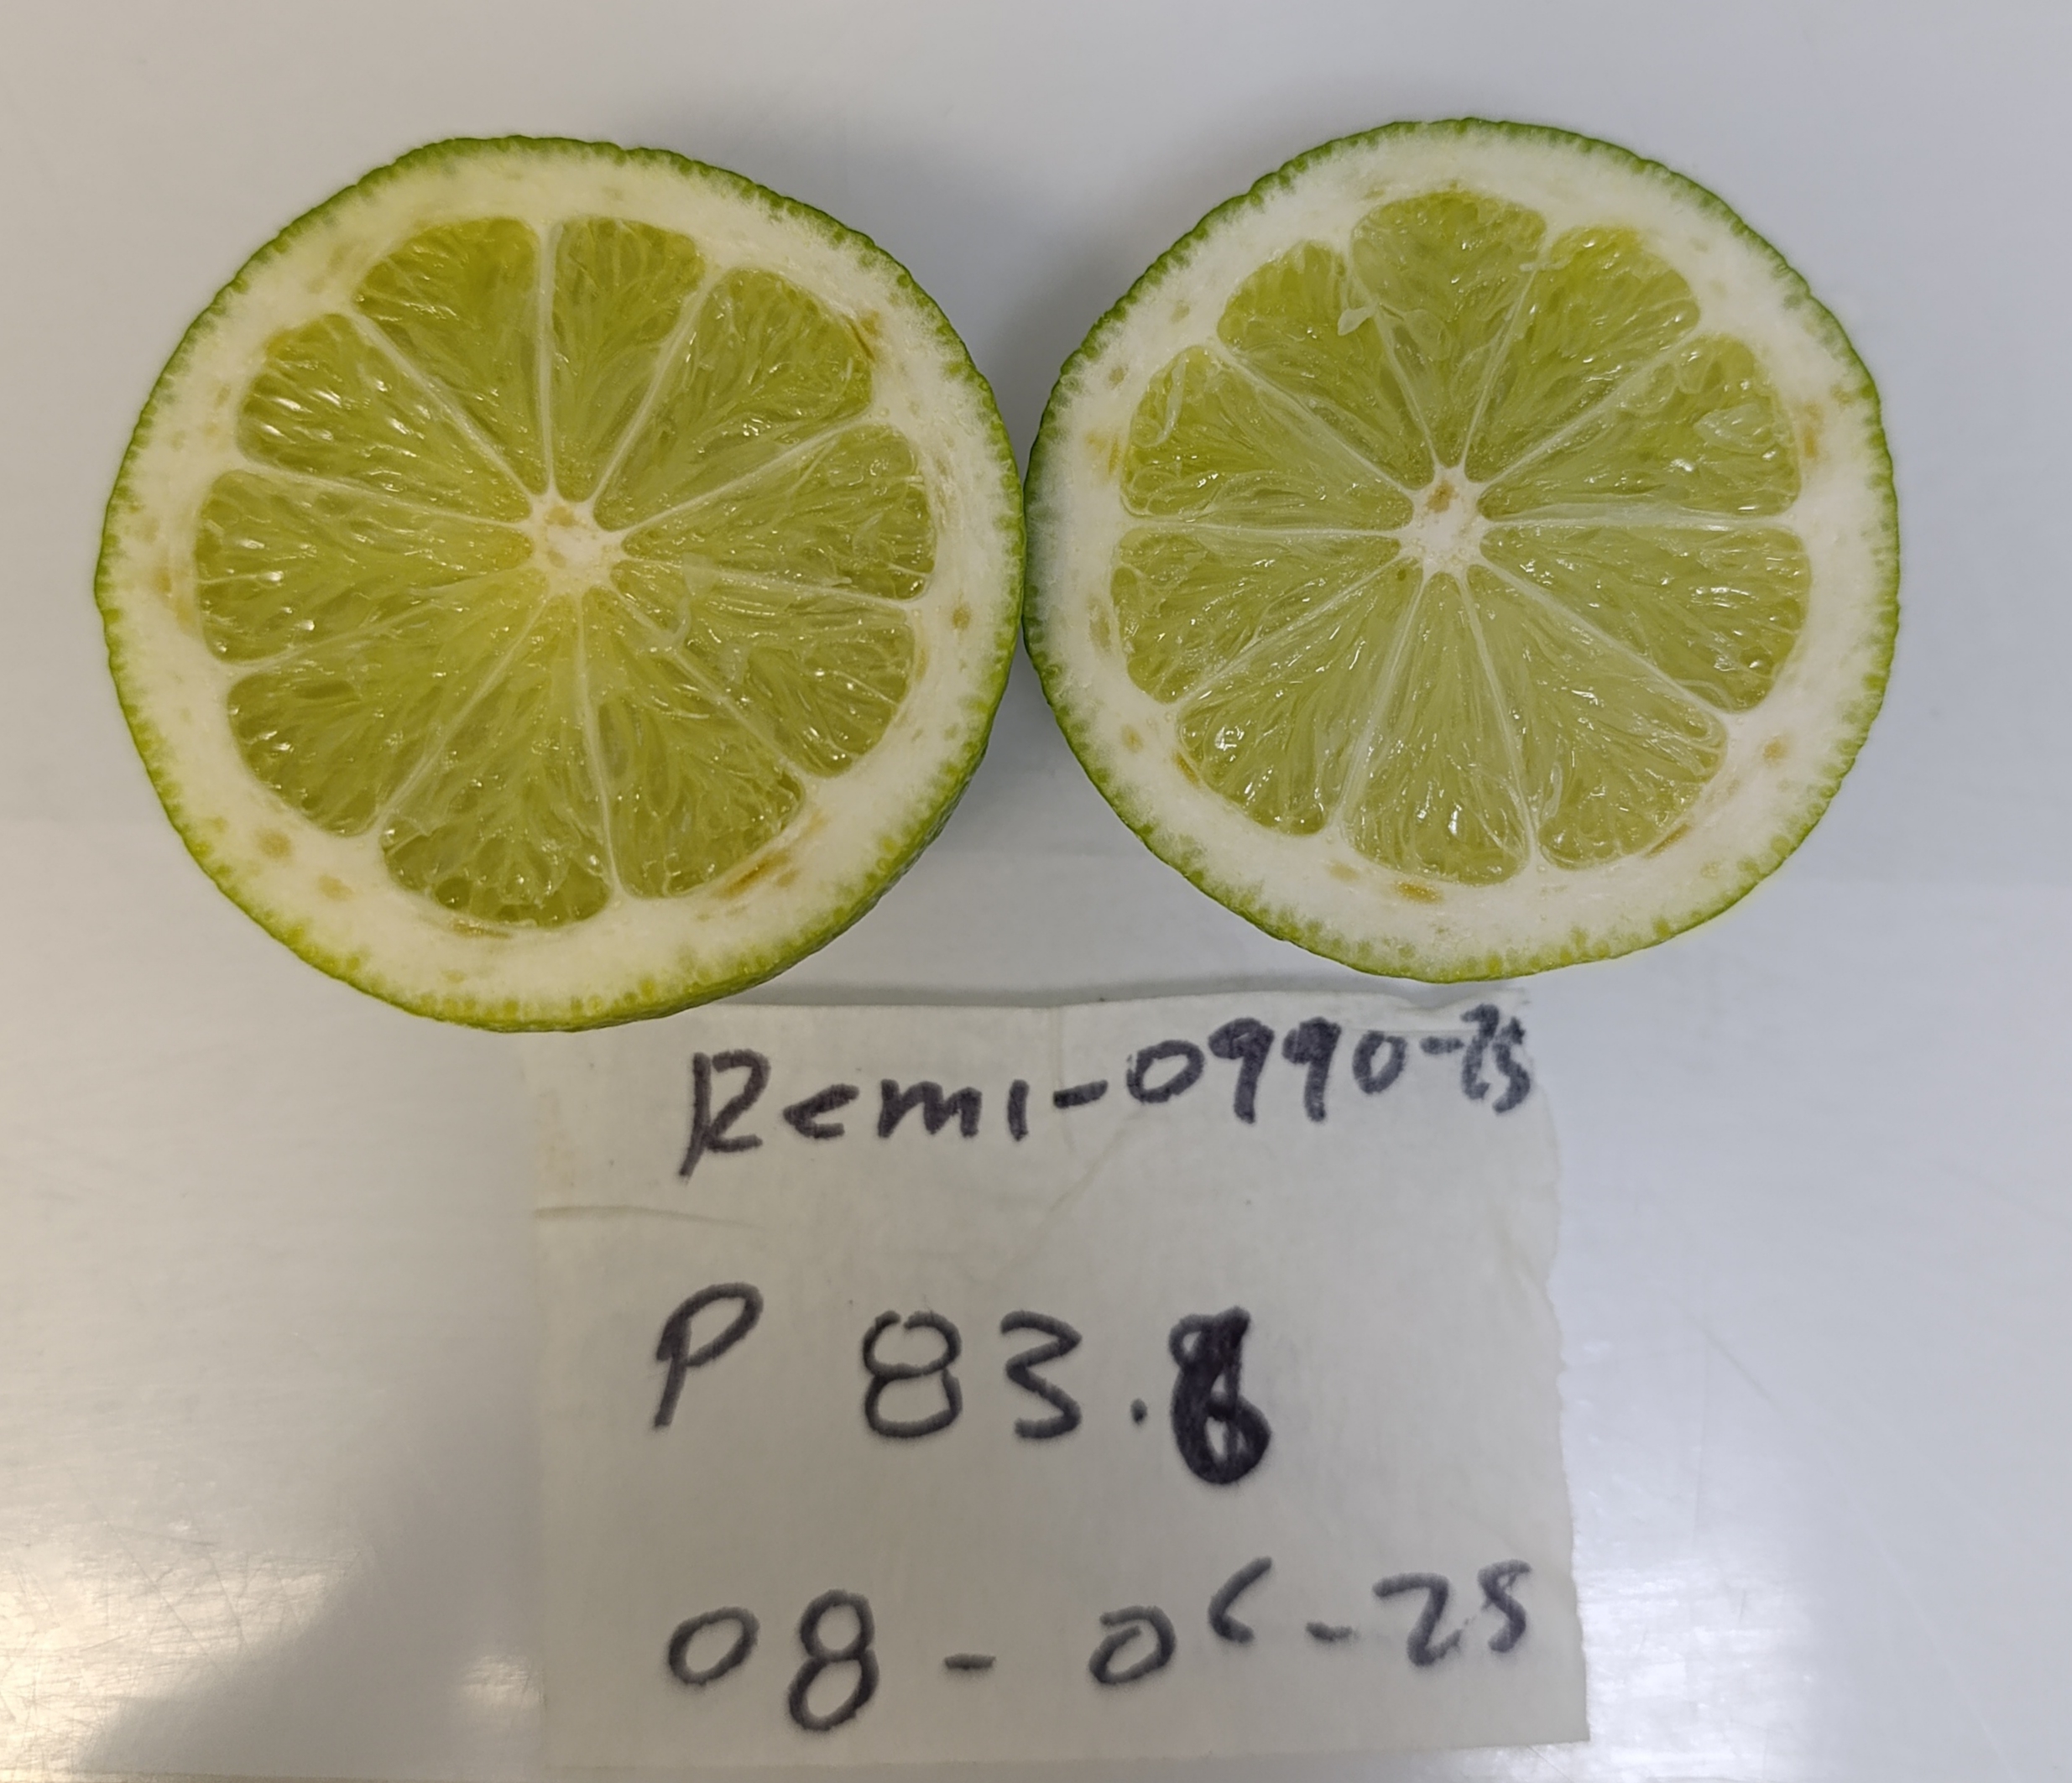 Remi-0990-25
P 83.6
08-06-25